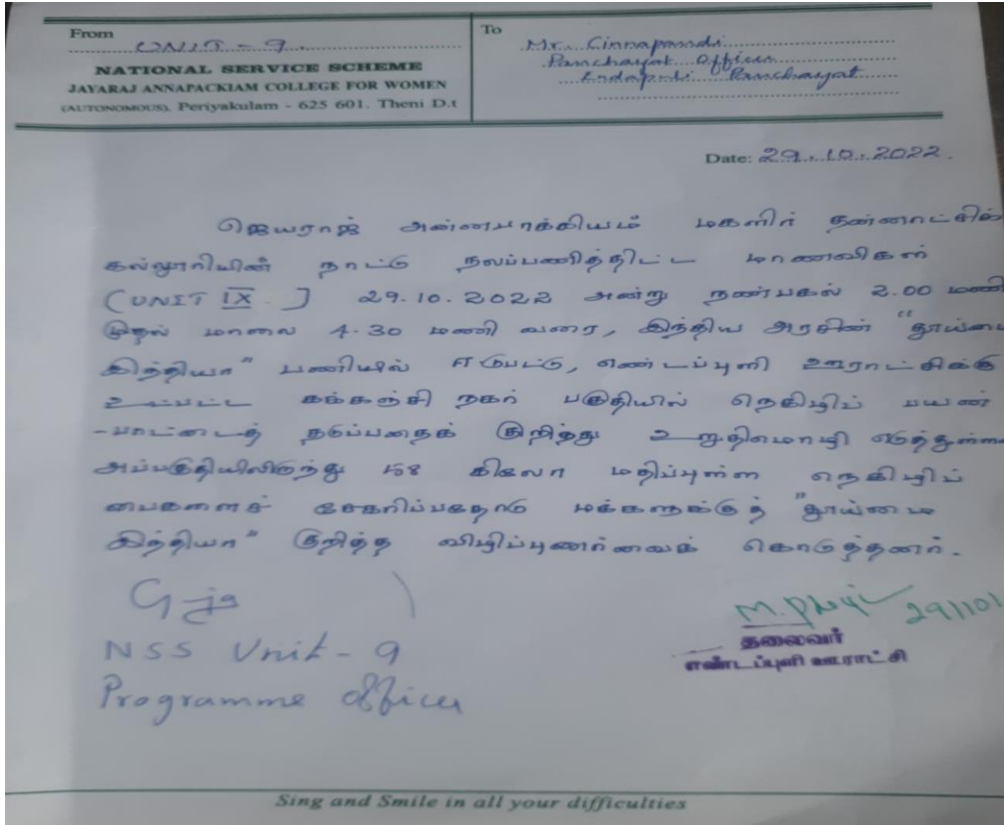 From
UNIT - 9
NATIONAL SERVICE SCHEME
JAYARAJ ANNAPACKIAM COLLEGE FOR WOMEN
(AUTONOMOUS), Periyakulam - 625 601. Theni D.t
To
Mr. Cinnapandi
Panchayat Officer
Endapuli Panchayat
Date: 29.10.2022.
ஜெயராஜ் அன்னபாக்கியம் மகளிர் தன்னாட்சிக்
கல்லூரியின் நாட்டு நலப்பணித்திட்ட மாணவிகள்
(UNIT IX) 29.10.2022 அன்று நண்பகல் 2.00 மணி
முதல் மாலை 4.30 மணி வரை, இந்திய அரசின் "தூய்மை
இந்தியா" பணியில் ஈடுபட்டு, எண்டப்புளி ஊராட்சிக்கு
உட்பட்ட கக்கன்சி நகர் பகுதியில் நெகிழிப் பயன்
-பாட்டைத் தடுப்பதைக் குறித்து உறுதிமொழி எடுத்துள்ள
அப்பகுதியிலிருந்து 58 கிலோ மதிப்புள்ள நெகிழிப்
பைகளைச் சேகரிப்பதோடு மக்களுக்குத் "தூய்மை
இந்தியா" குறித்த விழிப்புணர்வைக் கொடுத்தனர்.
NSS Unit - 9
Programme Officer
29/10/
தலைவர்
எண்டப்புளி ஊராட்சி
Sing and Smile in all your difficulties